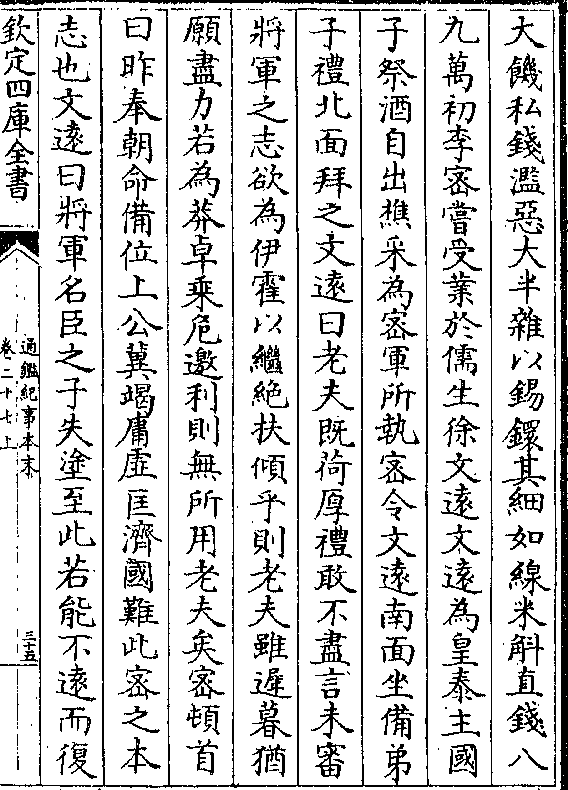 大饑私錢濫惡大半雜以錫鐶其細如線米斛直錢八
九萬初李密嘗受業於儒生徐文逺文逺為皇泰主國
子祭酒自出樵采為密軍所執密令文逺南面坐備弟
子禮北面拜之文逺曰老夫既荷厚禮敢不盡言未審
將軍之志欲為伊霍以繼絶扶傾乎則老夫雖遲暮猶
願盡力若為莽卓乘危邀利則無所用老夫矣密頓首
曰昨奉朝命備位上公冀竭庸虛匡濟國難此密之本
志也文逺曰將軍名臣之子失塗至此若能不逺而復
欽定四庫全書
通鑑紀事本末
卷二十七上
三十五